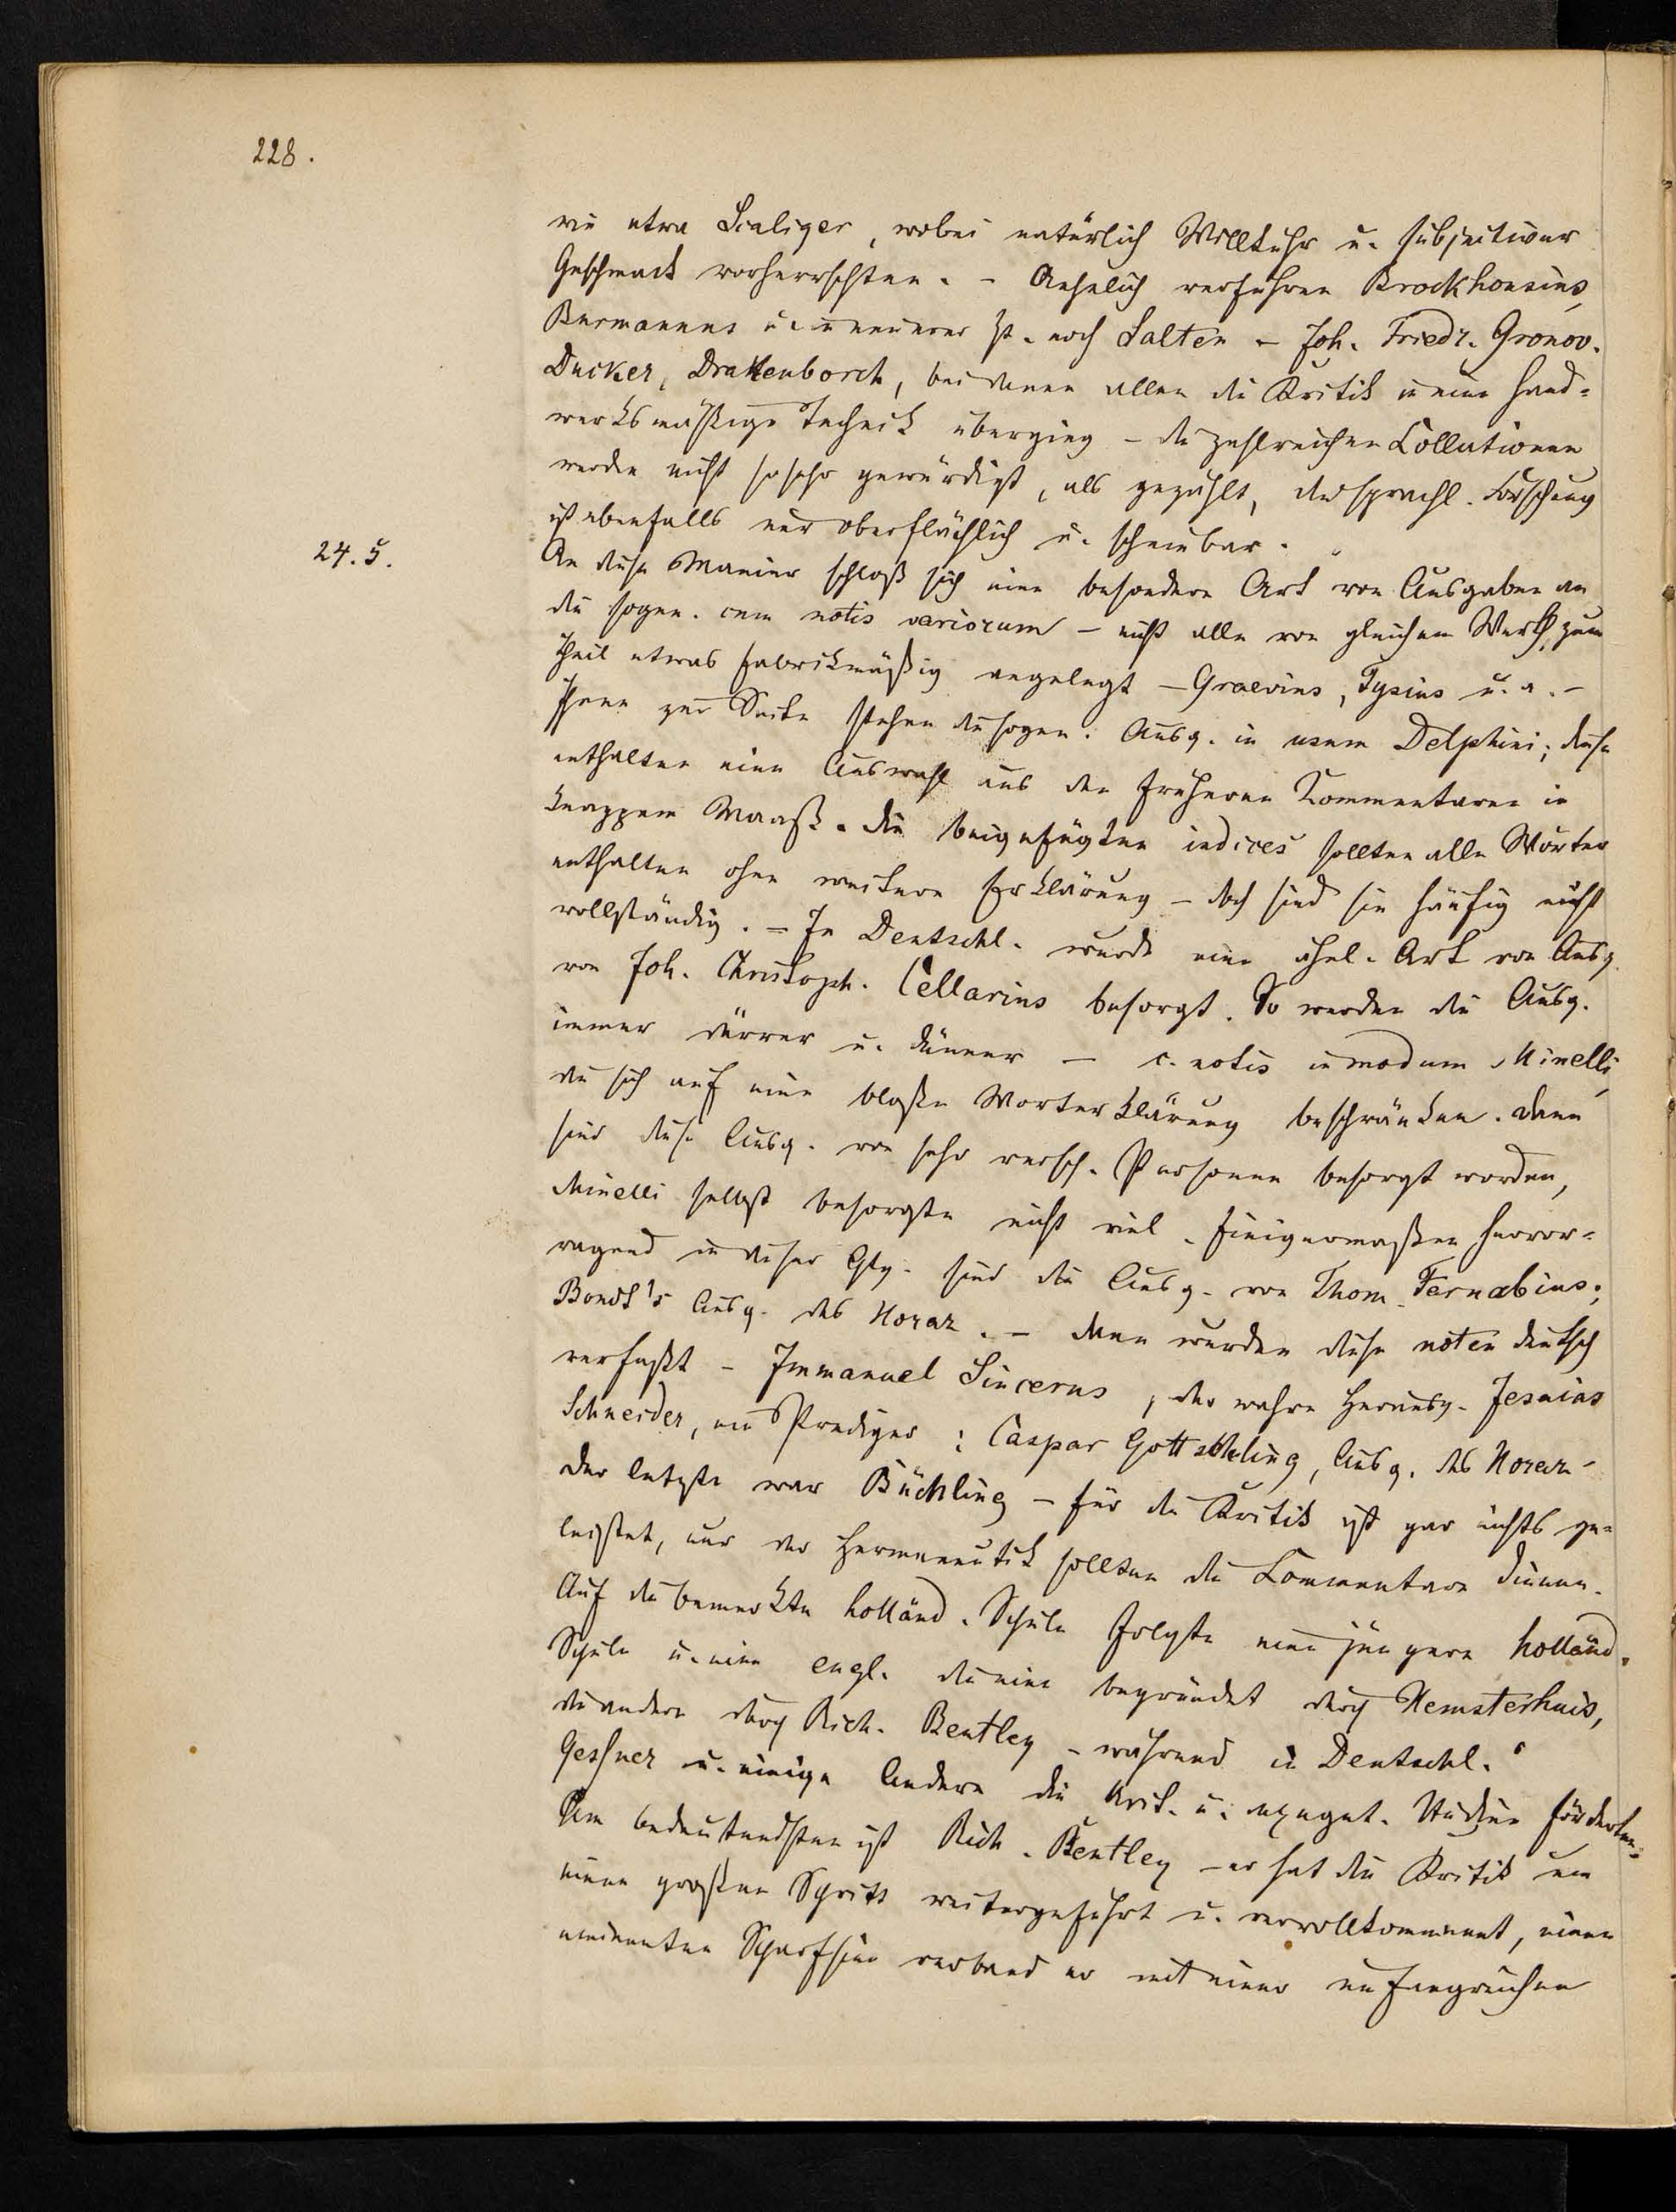 228.
wie etwa Scaliger, wobei natürlich Willkühr u. subjectiver
Geschmack vorherrschten. - Aehnlich verfuhren Brockhousius,
Burmannus u. in neuerer Zt. noch Salten - Joh. Friedr. Gronov.
Ducker, Drakenborch, bei denen allen die Kritik in eine hand-
werksmäßige Technik überging - die zahlreichen Collationen
werden nicht so sehr gewürdigt, als gezählt, die sprachl. Forschung
ist ebenfalls nur oberflächlich u. scheinbar.
24. 5.
An diese Manier schloß sich eine besondere Art von Ausgaben an
die sogen. cum notis variorum - nicht alle von gleichem Werth, zum
Theil etwas fabrikmäßig angelegt - Graevius, Tysius u. a. -
Ihnen zur Seite stehen die sogen. Ausg. in usum Delphini; diese
enthalten eine Auswahl aus den früheren Kommentaren in
knappem Maaß. die beigefügten indices sollten alle Wörter
enthalten ohne weitere Erklärung - doch sind sie häufig nicht
vollständig. - In Deutschl. wurde eine ähnl. Art von Ausg.
von Joh. Christoph. Cellarius besorgt. So werden die Ausg.
immer dürrer u. dünner - c. notis in modum Minelli,
die sich auf eine bloße Worterklärung beschränken. dann
sind diese Ausg. von sehr versch. Personen besorgt worden,
Minelli selbst besorgte nicht viel. Einigermaßen hervor-
ragend in dieser Gtg. sind die Ausg. von Thom. Farnabius;
Bond's Ausg. des Horaz. - dann wurden diese noten deutsch
verfaßt - Immanuel Sincerus, der wahre Herausg. Jesaias
Schneider, ein Prediger; Caspar Gottschling, Ausg. des Horaz -
der letzte war Büchling - für die Kritik ist gar nichts ge-
leistet, nur der Hermeneutik sollten die Commentare dienen.
Auf die bemerkte holländ. Schule folgte eine jüngere holländ.
Schule u. eine engl. die eine begründet durch Hemsterhuis,
die andere durch Rich. Bentley - während in Deutschl.
Gesner u. einige Andere die krit. u. exeget. Studien förderten.
Am bedeutendsten ist Rich. Bentley - er hat die Kritik um
einen großen Schritt weitergeführt u. vervollkommnet, einen
eminenten Scharfsinn verband er mit einer umfangreichen